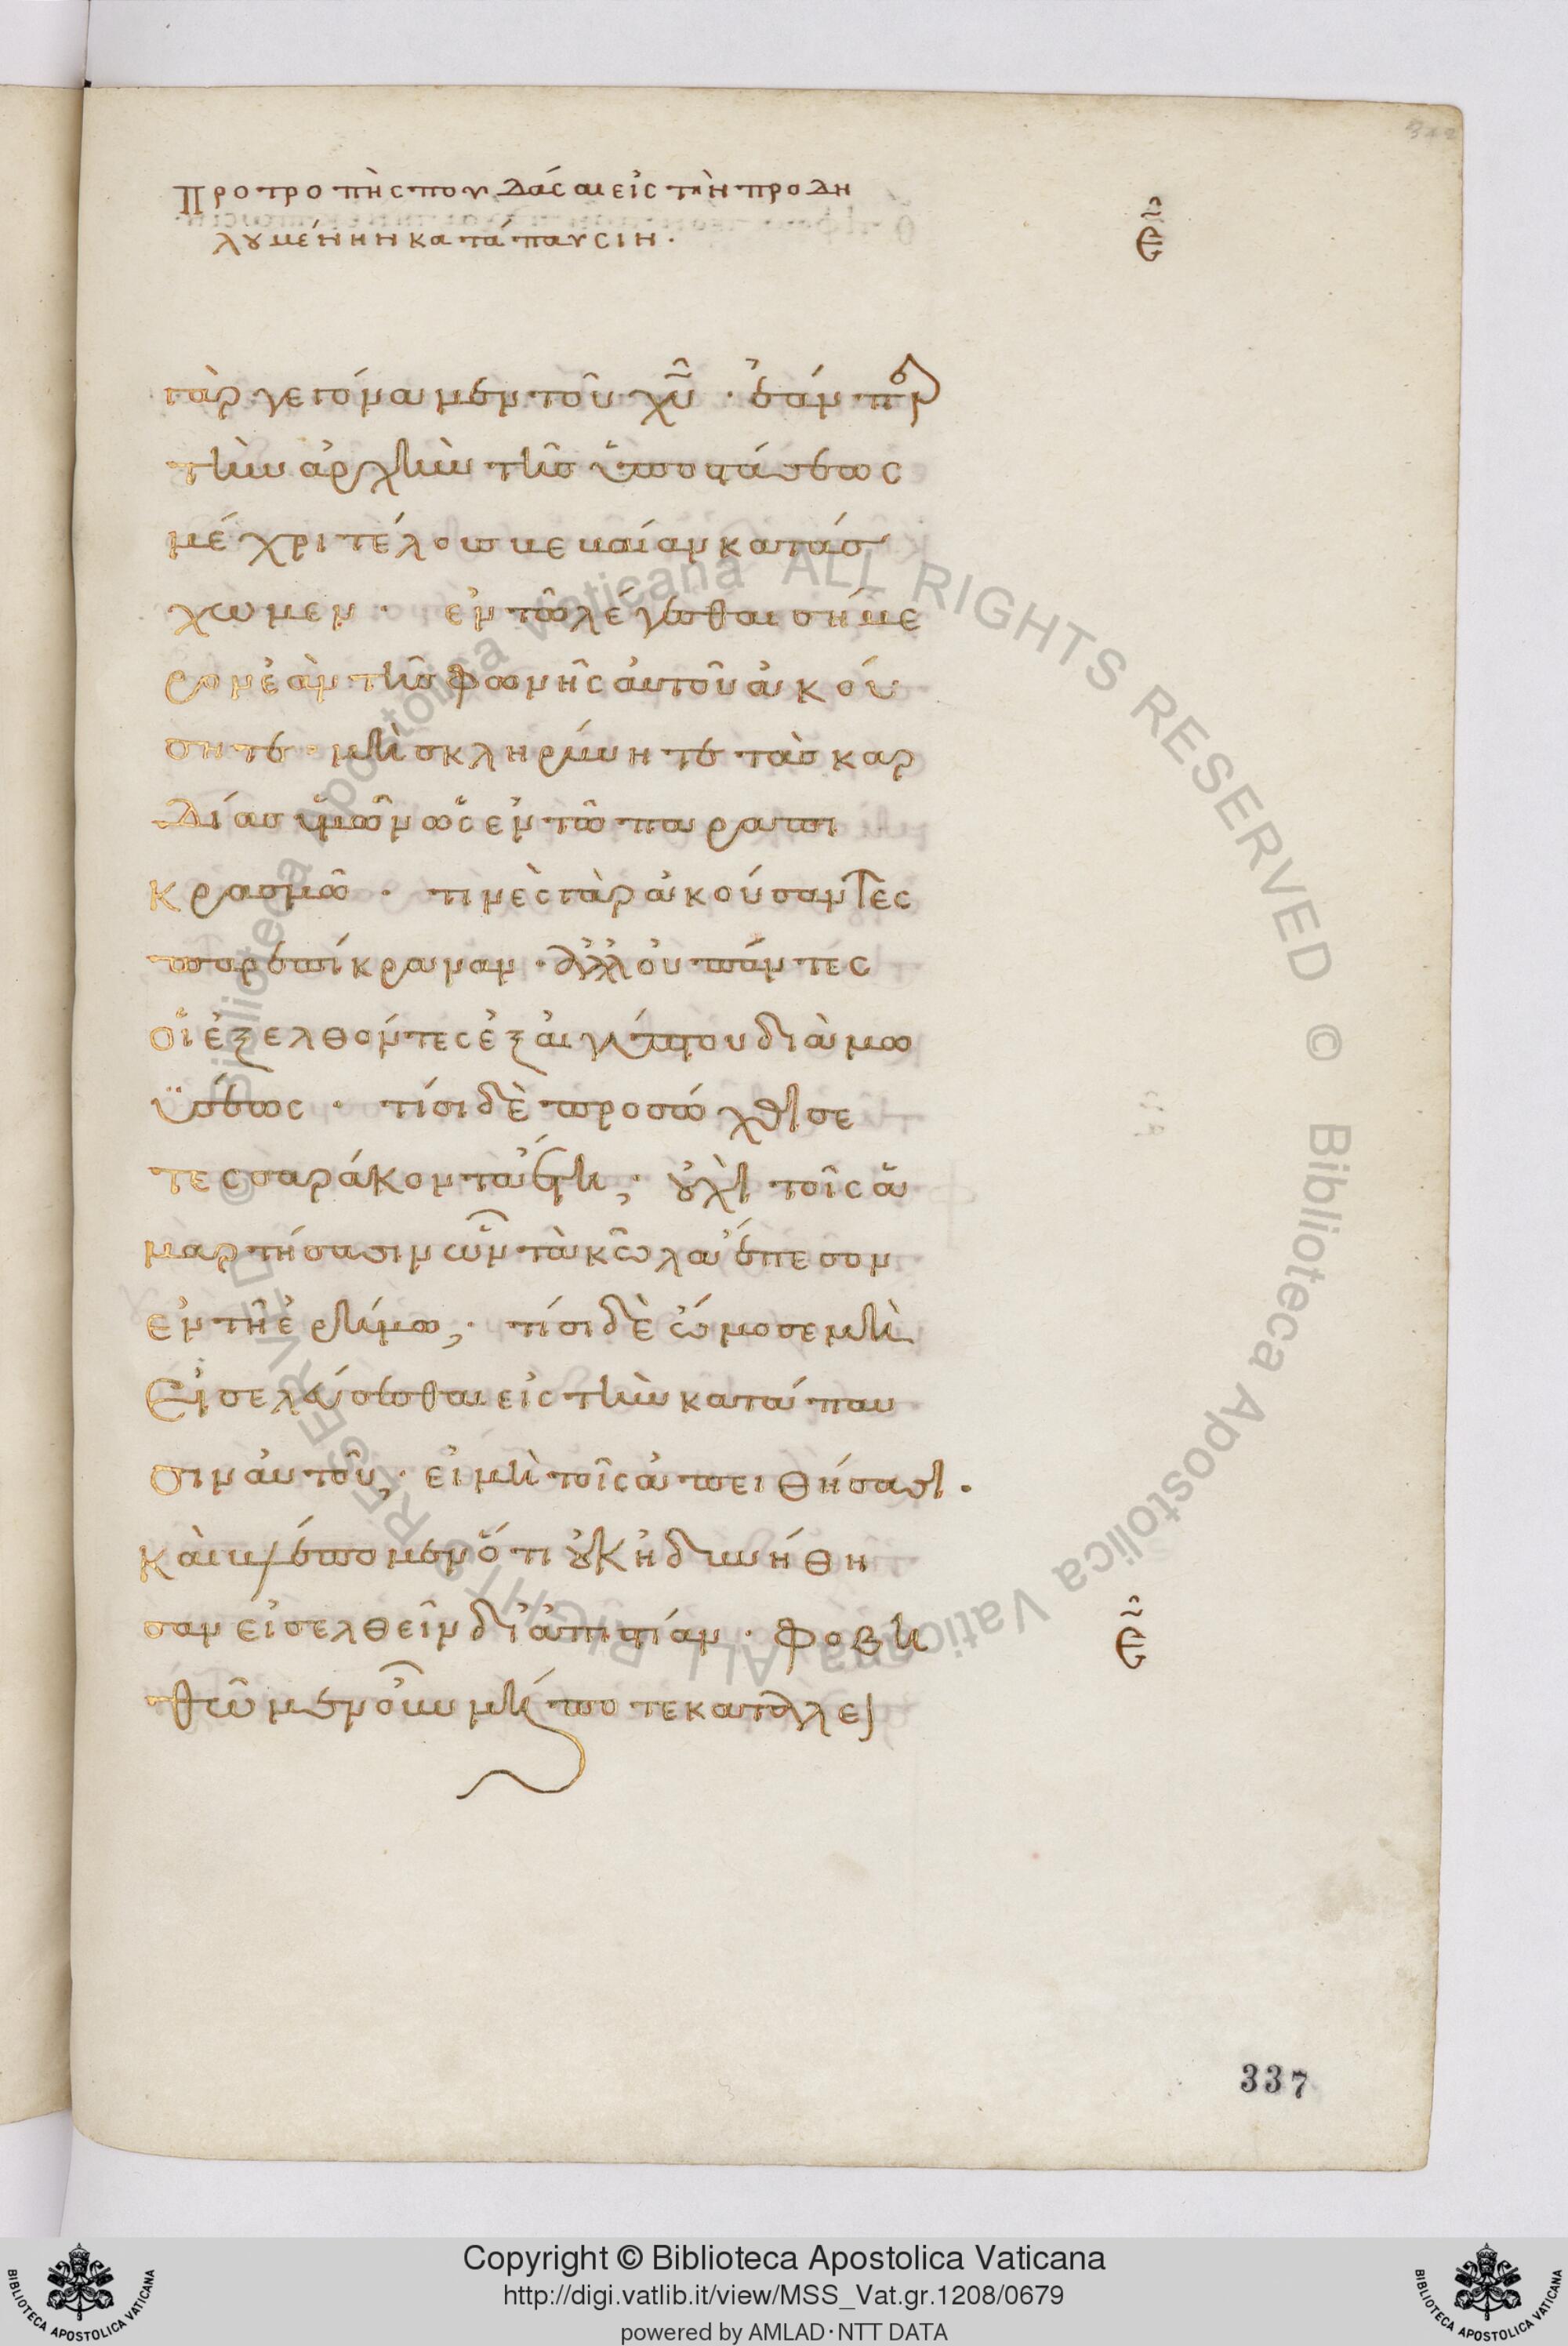 Προτροπὴ σπουδάσαι εἰς τὴν προδη
λουμένην κατάπαυσιν.
γὰρ γεγόναμεν τοῦ χυ̅ · ἐάν περ
τὴν ἀρχὴν τῆς ὑποστάσεως
μέχρι τέλους βεβαίαν κατάσ
χωμεν · ἐν τῶ λέγεσθαι σήμε
ρον ἐὰν τῆς φωνῆς αὐτοῦ ἀκού
σητε · μὴ σκληρύνητε τὰς καρ
δίας ὑμῶν ὡς ἐν τῶ παραπι
κρασμῶ · τινὲς γὰρ ἀκούσαντες
παρεπίκραναν · ἀλλ' οὐ πάντες
οἱ ἐξελθόντες ἐξ αἰγύπτου διὰ μω
ϋσέως · τίσι δὲ προσώχθισε
τεσσαράκοντα ἔτη; οὐχὶ τοῖς ἁ
μαρτήσασιν ὧν τὰ κῶλα ἔπεσον
ἐν τῆ ἐρήμω; τίσι δὲ ὤμοσε μὴ
εἰσελεύσεσθαι εἰς τὴν κατάπαυ
σιν αὐτοῦ; εἰ μὴ τοῖς ἀπειθήσασι ·
καὶ βλέπομεν ὅτι οὐκ ἠδυνήθη
σαν εἰσελθεῖν δι' ἀπιστίαν · φοβη
θῶμεν οὖν μήποτε καταλει
337
Copyright © Biblioteca Apostolica Vaticana
http://digi.vatlib.it/view/MSS_Vat.gr.1208/0679
powered by AMLAD·NTT DATA
BIBLIOTECA APOSTOLICA VATICANA
BIBLIOTECA APOSTOLICA VATICANA
© Biblioteca Apostolica Vaticana ALL RIGHTS RESERVED © Biblioteca Apostolica Vaticana ALL RIGHTS RESERVED